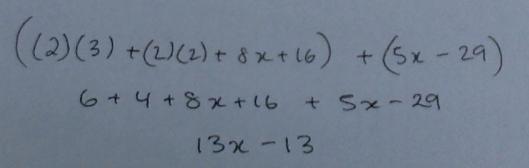 ((2)(3) + (2)(2) + 8x + 16) + (5x - 29)
6 + 4 + 8x + 16 + 5x - 29
13x - 13